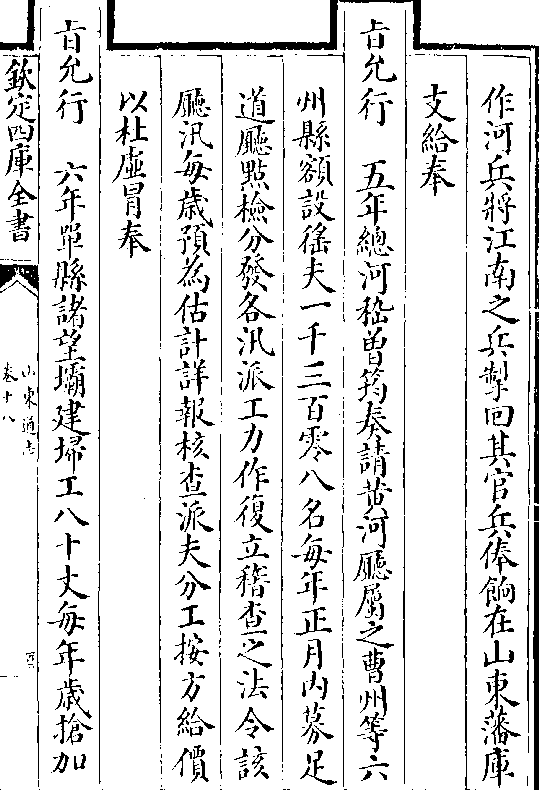 作河兵將江南之兵掣回其官兵俸餉在山東藩庫
支給奉
旨允行　五年總河嵇曾筠奏請黄河廳屬之曹州等六
州縣額設徭夫一千三百零八名每年正月内募足
道廳點檢分發各汛派工力作復立稽查之法令該
廳汛每歲預為估計詳報核查派夫分工按方給價
以杜虛冒奉
旨允行　六年單縣諸望壩建埽工八十丈每年歲搶加
欽定四庫全書
山東通志
卷十八